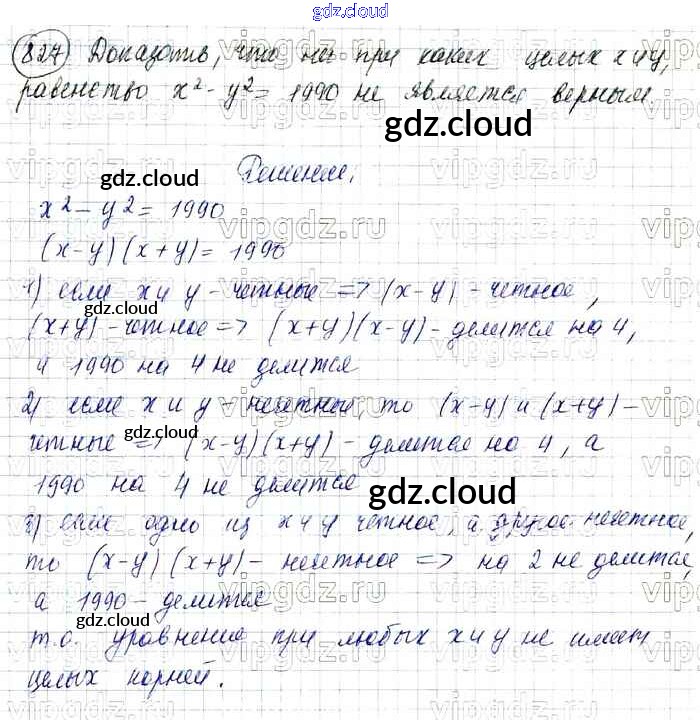 gdz.cloud
827 Доказать, что ни при каких целых x и y,
равенство x² - y² = 1990 не является верным.
gdz.cloud
Решение.
gdz.cloud
x² - y² = 1990
(x-y)(x+y) = 1990
1) если x и y - четные => (x-y) - четное,
gdz.cloud
(x+y) - четное => (x+y)(x-y) - делится на 4,
а 1990 на 4 не делится
2) если x и y - нечетные, то (x-y) и (x+y) -
gdz.cloud
четные => (x-y)(x+y) - делится на 4, а
1990 на 4 не делится
gdz.cloud
3) если одно из x и y четное, а другое нечетное,
то (x-y)(x+y) - нечетное => на 2 не делится,
а 1990 - делится
gdz.cloud
т.о. уравнение при любых x и y не имеет
целых корней.